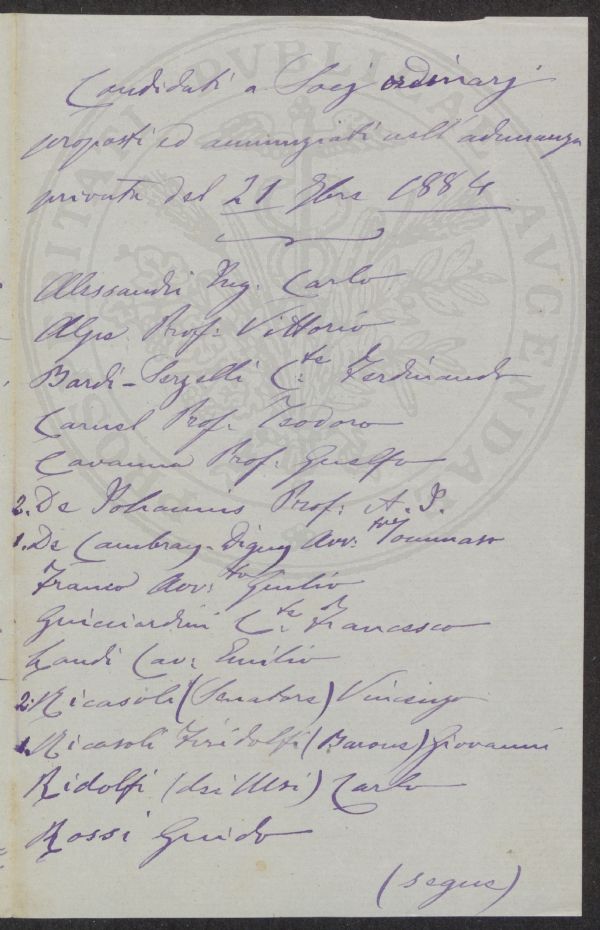 Candidati a Socj ordinarj
proposti ed annunziati nell'adunanza
privata del 21 9bre 1884
Alessandri Ing. Carlo
Alpe Prof: Vittorio
Bardi-Serzelli C:te Ferdinando
Caruel Prof. Teodoro
Cavanna Prof: Guelfo
2. De Johannis Prof: A. J.
1. De Cambray-Digny Avv:to Tommaso
Franco Avv:to Giulio
Guicciardini C:te Francesco
Landi Cav: Emilio
2. Ricasoli (Senatore) Vincenzo
1. Ricasoli Firidolfi (Barone) Giovanni
Ridolfi (dei Msi) Carlo
Rossi Guido
(segue)
PUBLICAE AUGENDAE